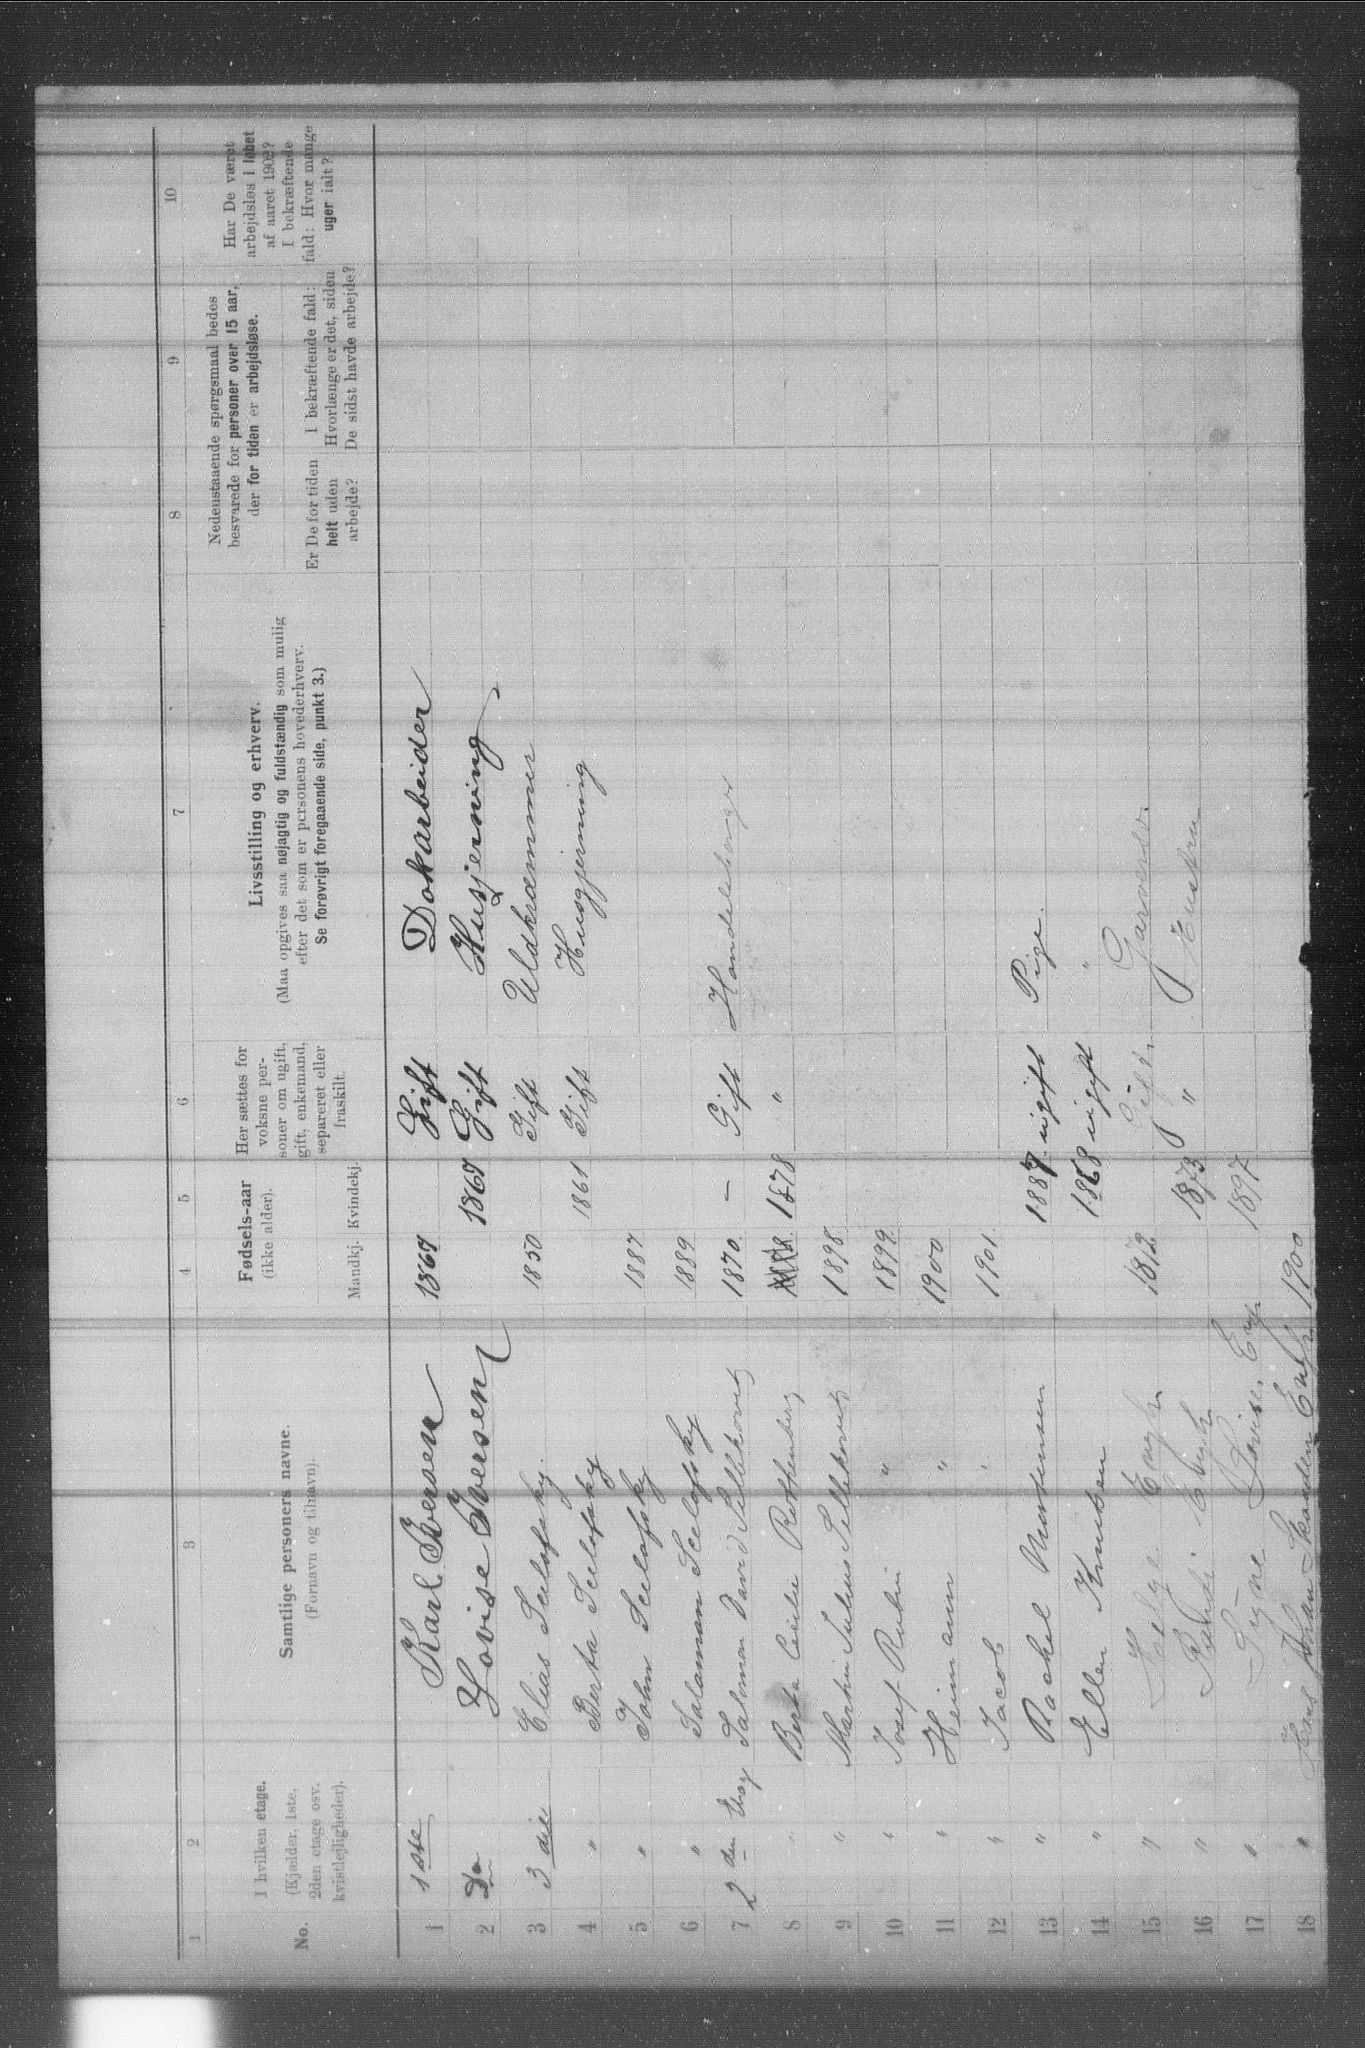 1 2 3 4 5 6 7 8 9 10
No.
I hvilken etage.
(Kjælder, 1ste,
2den etage osv.
kvistlejligheder).
Samtlige personers navne.
(Fornavn og tilnavn).
Fødsels-aar
(ikke alder).
Mandkj. Kvindekj.
Her sættes for
voksne per-
soner om ugift,
gift, enkemand,
separeret eller
fraskilt.
Livsstilling og erhverv.
(Maa opgives saa nøjagtig og fuldstændig som mulig
efter det som er personens hovederhverv.
Se forøvrigt foregaaende side, punkt 3.)
Nedenstaaende spørgsmaal bedes
besvarede for personer over 15 aar,
der for tiden er arbejdsløse.
Er De for tiden
helt uden
arbejde?
I bekræftende fald:
Hvorlænge er det, siden
De sidst havde arbejde?
Har De været
arbejdsløs i løbet
af aaret 1902?
I bekræftende
fald: Hvor mange
uger ialt?
1 1ste Karl Iversen 1867 Gift Dokarbeider
2 Do Lovise Iversen 1867 Gift Husjerning
3 3die Elias Seelofsky. 1850 Gift Uldkræmmer
4 " Berta Seelofsky 1861 Gift Husgjerning
5 " John Seelofsky 1887
6 " Salamon Seelofsky 1889
7 2den Etag Salomon David 1870. — Gift
8 " Berta Cecilie Rothenberg 1878 "
9 " Martin Julius 1898
10 " Josef Rubin " 1899
11 " Heimann " 1900
12 " Jacob " 1901.
13 " Rachel 1887. ugift Pige.
14 " Ellen Knutsen 1868 ugift "
15 " Helge Engh 1872 Gift
16 " Engh 1873 " Hustru
17 " Signe Lovise Engh 1897
18 " Hans Johan Engh 1900